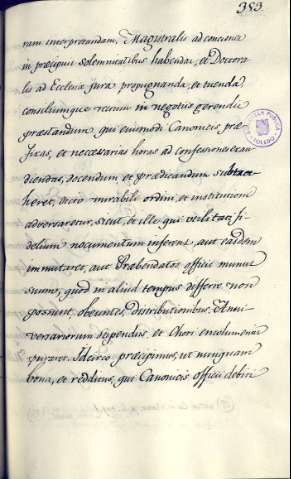 383.
ram interpretandam, Magistralis ad conciones
in præcipuis solemnitatibus habendas, et Doctora-
lis ad Ecclesiæ jura propugnanda, et tuenda,
consiliumque rerum in negotiis gerendis
præstandum, qui ejusmodi Canonicis præ-
fixas, et necessarias horas ad confessiones exau-
diendas, docendum et prædicandum subtra-
heret, viro mirabili ordini, et institutioni
adversaretur, sicut, et ille qui utilitati fi-
delium nocumentum inferre, aut eadem
immutaret, aut Præbendatos officii munus
suum, quod in aliud tempus differre non
possunt, obeuntes, distributionibus, Anni-
versariorum stipendiis, et Chori emolumentis
privaret. Idcirco præcipimus, ut nunquam
bona, et redditus, qui Canonicis officii debiti